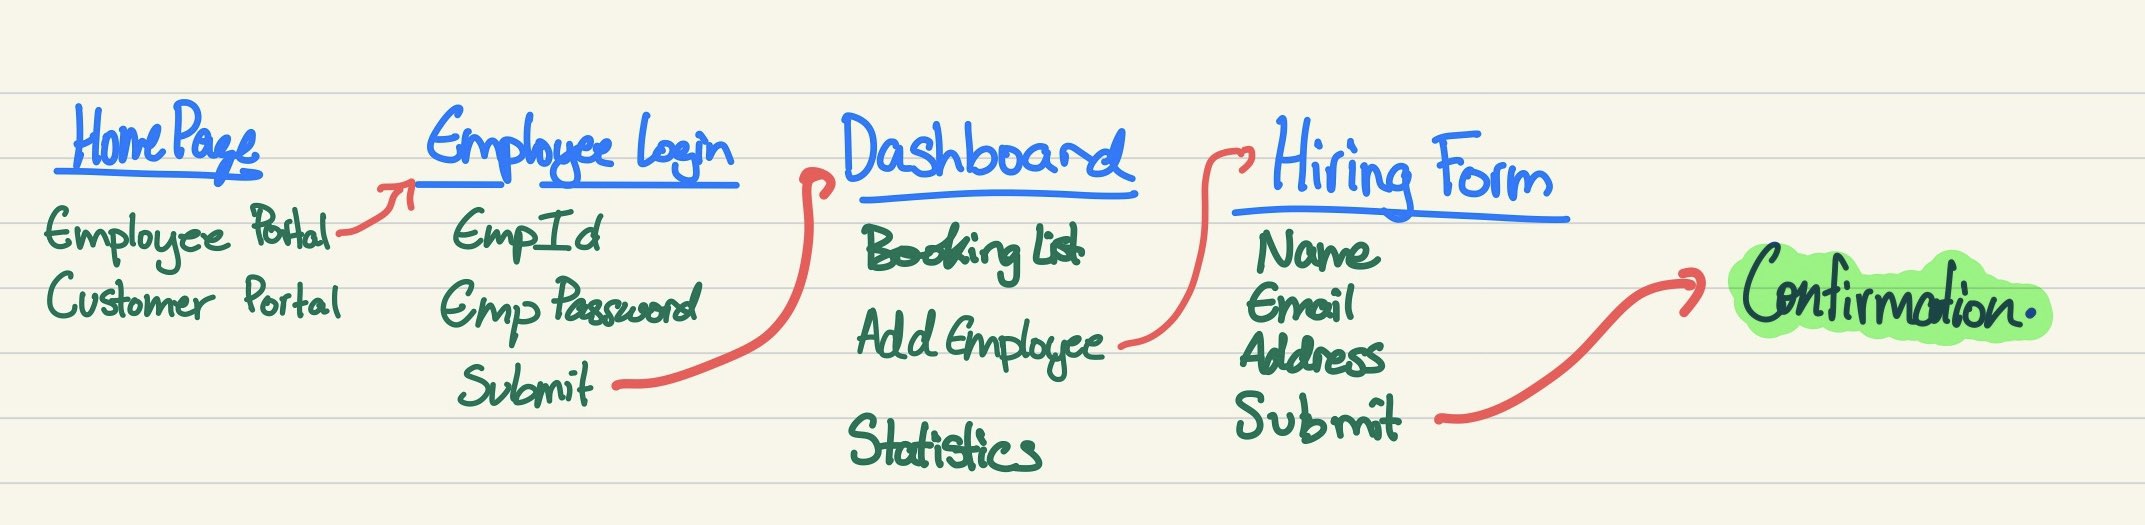 HomePage
Employee Portal
Customer Portal
Employee Login
EmpId
Emp Password
Submit
Dashboard
Booking List
Add Employee
Statistics
Hiring Form
Name
Email
Address
Submit
Confirmation.